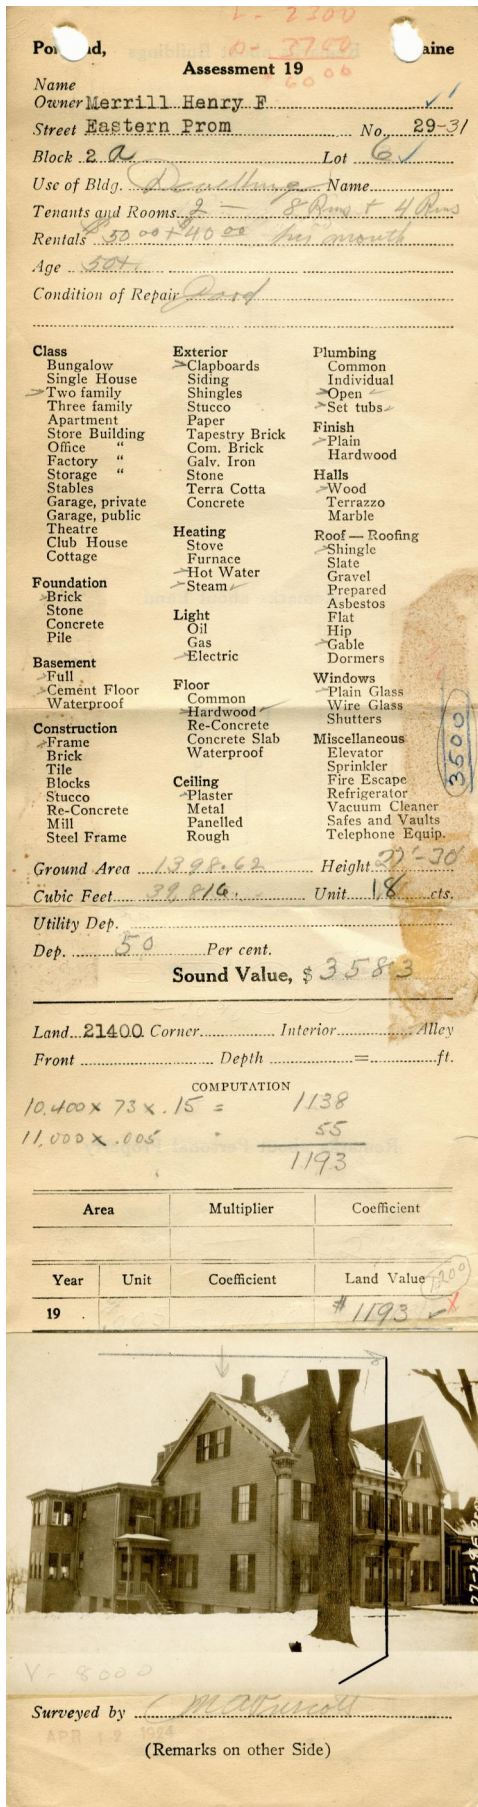 L - 2300
B - 3700
6000
Po and, aine
Assessment 19
Name
Owner Merrill Henry F
Street Eastern Prom No. 29-31
Block 2 a Lot 6
Use of Bldg. Dwelling Name
Tenants and Rooms 2 — 8 Rms + 4 Rms
Rentals $50 00 + $40 00 per month
Age 50+
Condition of Repair Good
Class
Bungalow
Single House
Two family
Three family
Apartment
Store Building
Office "
Factory "
Storage "
Stables
Garage, private
Garage, public
Theatre
Club House
Cottage
Foundation
Brick
Stone
Concrete
Pile
Basement
Full
Cement Floor
Waterproof
Construction
Frame
Brick
Tile
Blocks
Stucco
Re-Concrete
Mill
Steel Frame
Exterior
Clapboards
Siding
Shingles
Stucco
Paper
Tapestry Brick
Com. Brick
Galv. Iron
Stone
Terra Cotta
Concrete
Heating
Stove
Furnace
Hot Water
Steam
Light
Oil
Gas
Electric
Floor
Common
Hardwood
Re-Concrete
Concrete Slab
Waterproof
Ceiling
Plaster
Metal
Panelled
Rough
Plumbing
Common
Individual
Open
Set tubs
Finish
Plain
Hardwood
Halls
Wood
Terrazzo
Marble
Roof — Roofing
Shingle
Slate
Gravel
Prepared
Asbestos
Flat
Hip
Gable
Dormers
Windows
Plain Glass
Wire Glass
Shutters
Miscellaneous
Elevator
Sprinkler
Fire Escape
Refrigerator
Vacuum Cleaner
Safes and Vaults
Telephone Equip.
3500
Ground Area 1398.62 Height 27'-30'
Cubic Feet 39,816. Unit 18 cts.
Utility Dep.
Dep. 50 Per cent.
Sound Value, $ 3583
Land 21400 Corner Interior Alley
Front Depth = ft.
COMPUTATION
10.400 x 73 x .15 = 1138
11.000 x .005 " 55
1193
Area Multiplier Coefficient
Year Unit Coefficient Land Value
2200
19 # 1193
V- 8000
Surveyed by
APR 12 1924
(Remarks on other Side)